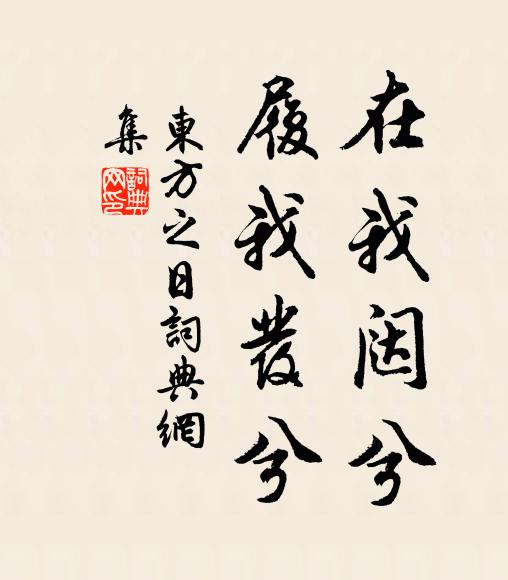 在我闥兮
履我發兮
東方之日詞典網
集
詞典网印